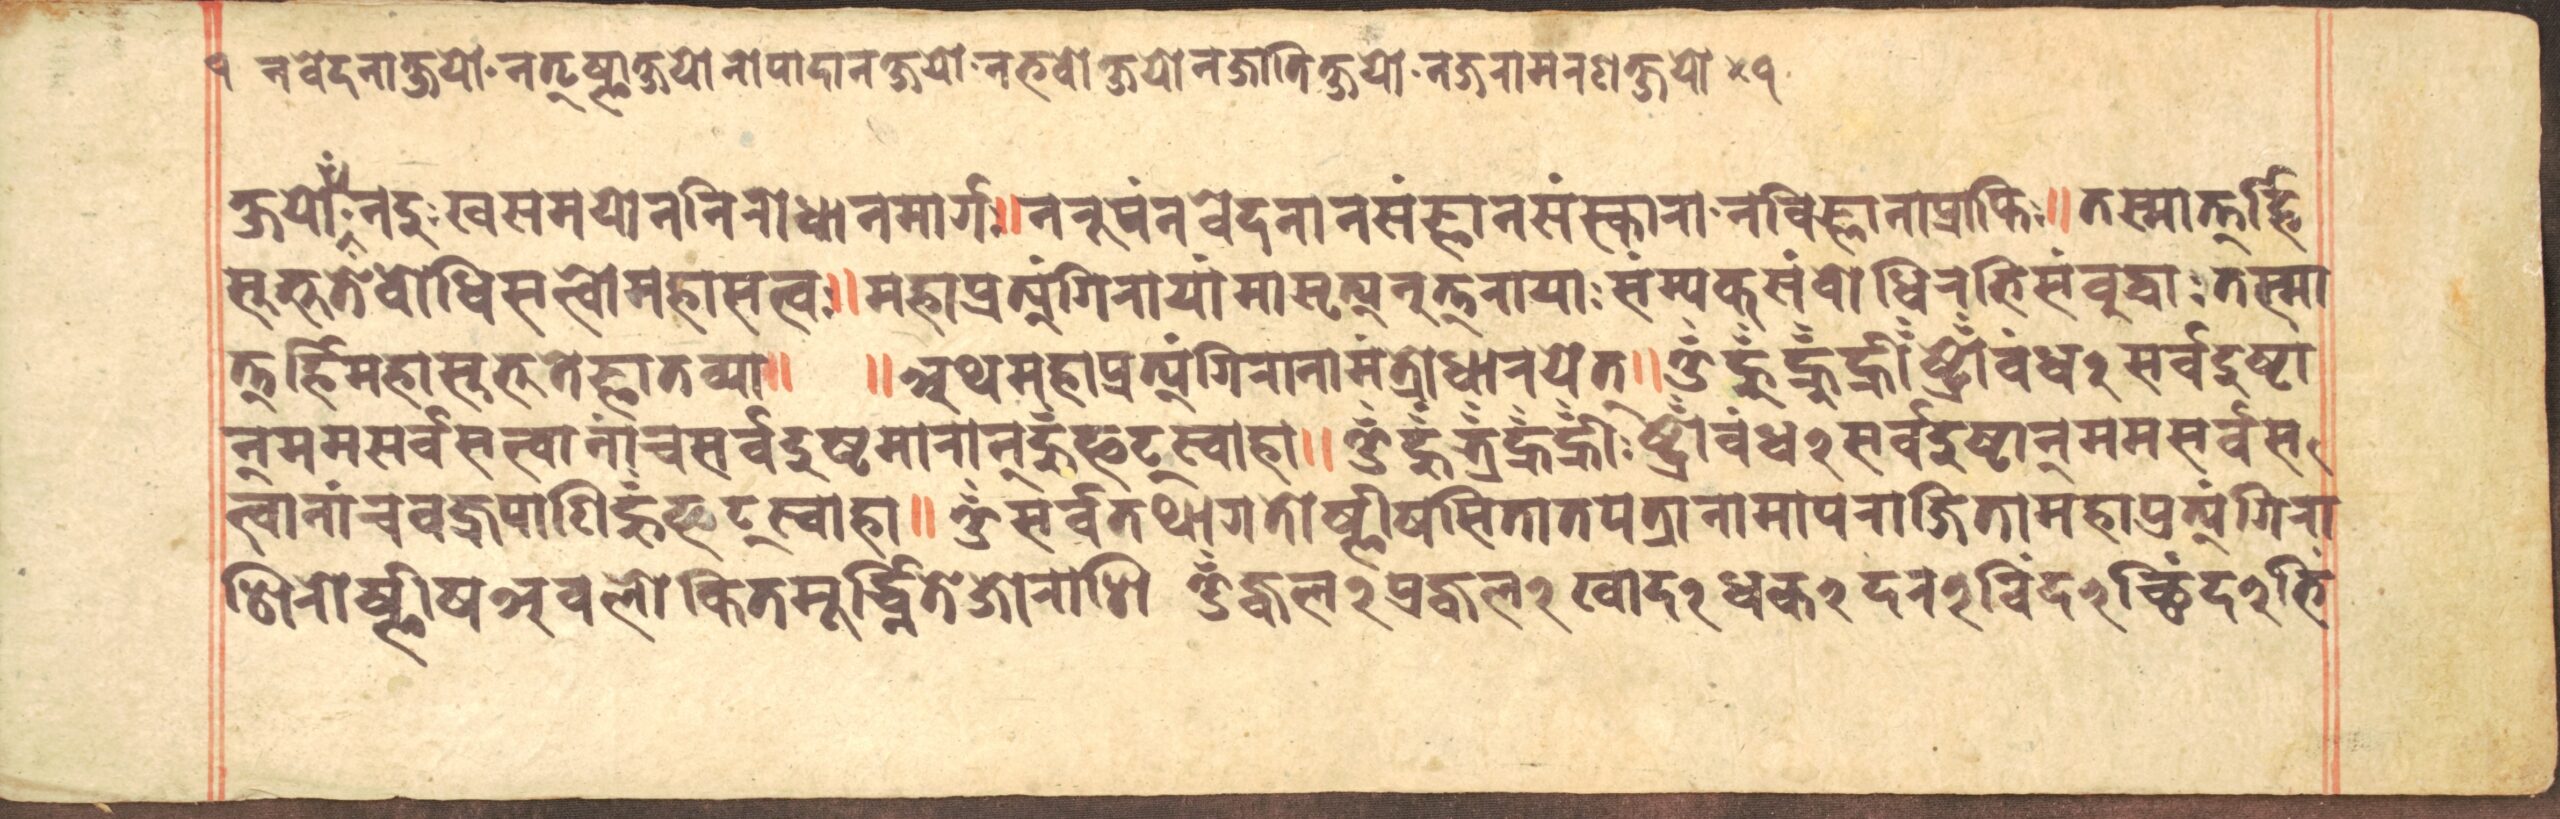 १ नवेदनाक्षयो॰नतृष्णाक्षयोनोपादानक्षयो॰नभवोक्षयोनजातिक्षयो॰नजरामरणक्षयो ×१
क्षयोः नदुःखसमयोननिरोधानमार्गः॥नरूपंनवेदनानसंज्ञानसंस्कारा॰नविज्ञानाप्राप्तिः॥तस्मात्तर्हि
सुभुतेबोधिसत्वोमहासत्वः॥महाप्रत्यंगिरायांमासृत्यनुत्तरायाःसंम्यक्संबोधिरभिसंबुद्धाःतस्मा
त्तर्हिमहासुभुतेज्ञातव्या॥ ॥अथमहाप्रत्यंगिरानामंत्रोधारयेत्॥ॐहुँ बंध२सर्वदुष्टा
न्ममसर्वसत्वानांचसर्वदुष्टमारान्हुँफट्स्वाहा॥ॐहुँ बंध२सर्वदुष्टान्ममसर्वस
त्वानांचवज्रपाणिहुँफट्स्वाहा॥ॐसर्वतथागतोष्णीषसितातपत्रानामापराजितामहाप्रत्यंगिरा
ष्णीषअवलोकितमूर्द्ध्नितेजोराशि ॐज्वल२प्रज्वल२खाद२धक२दर२विंद२च्छिंद२भिं